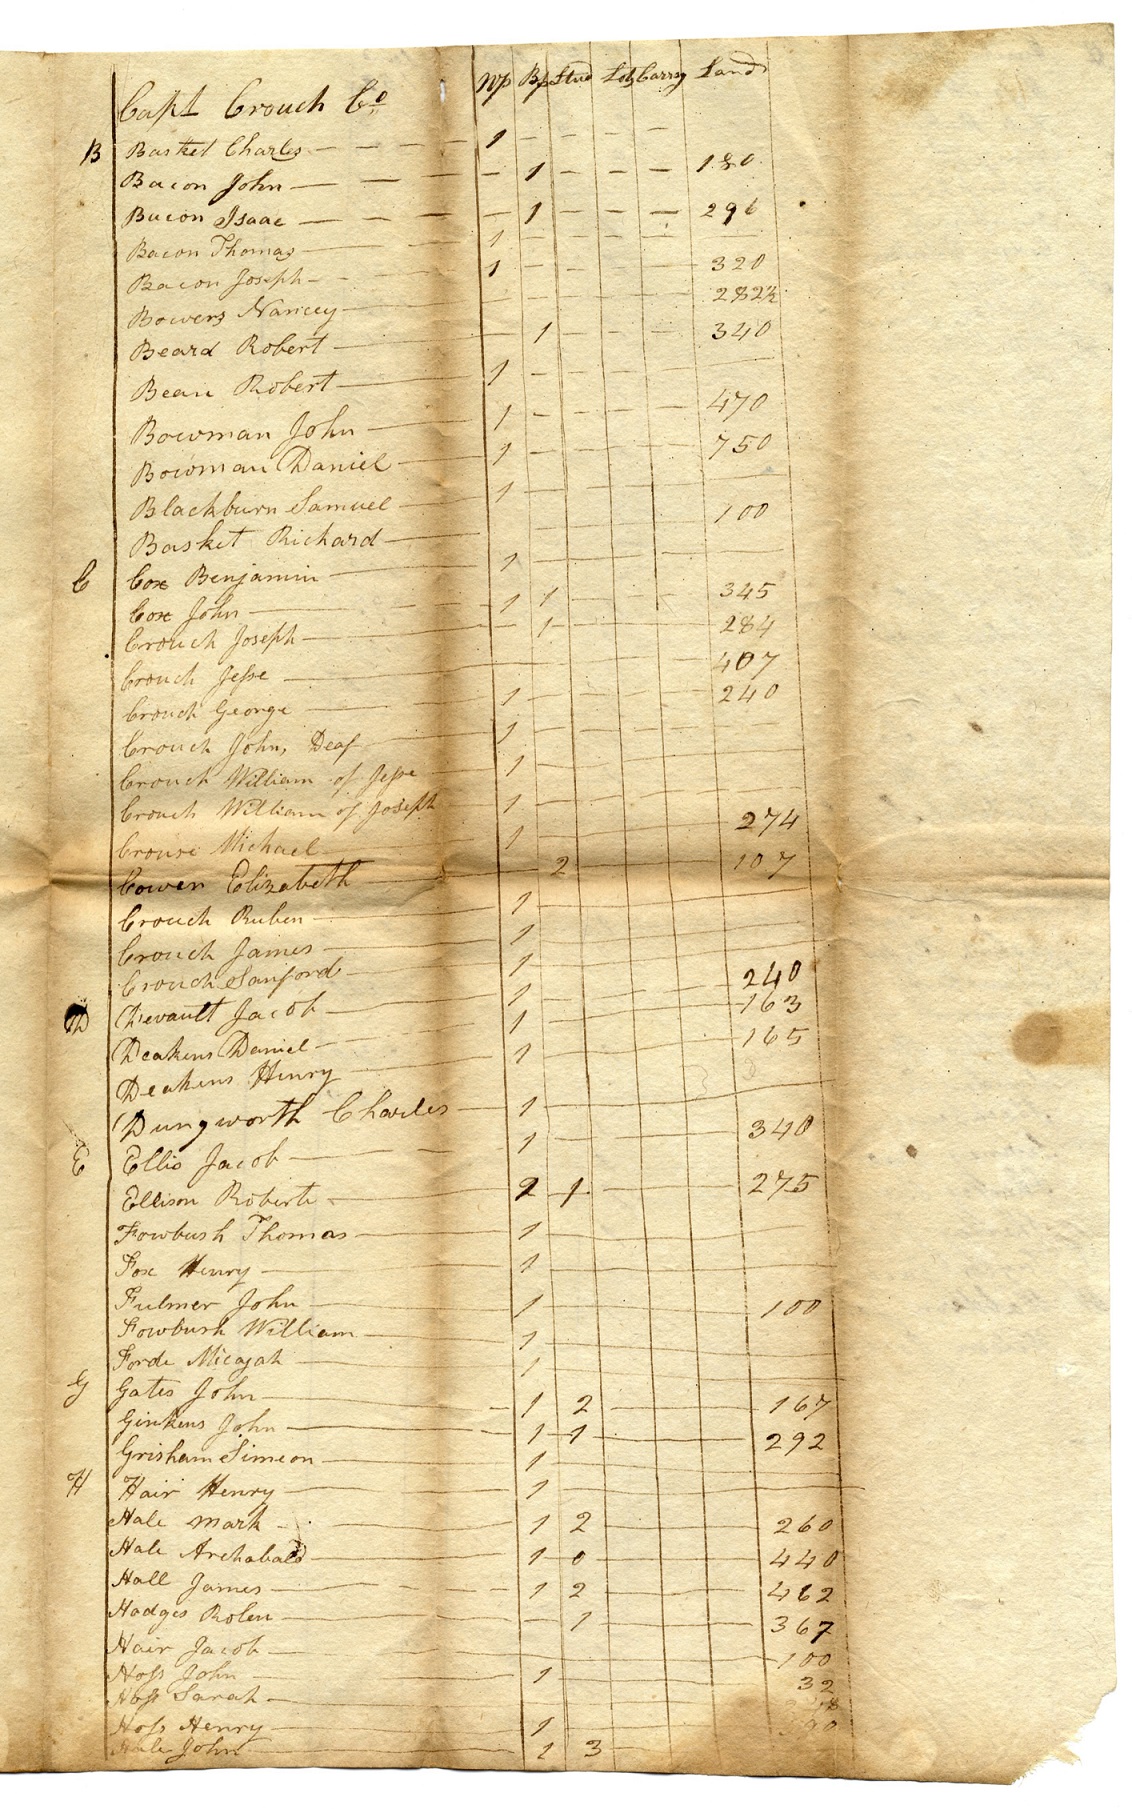 Capt Crouch Co Wp Bp Stud Lots Carrg Land
B Basket Charles 1
Bacon John 1 180
Bacon Isaac 1 296
Bacon Thomas 1
Bacon Joseph 1 320
Bowers Nancey 282½
Beard Robert 1 340
Bean Robert 1
Bowman John 1 470
Bowman Daniel 1 750
Blackburn Samuel 1
Basket Richard 100
C Cox Benjamin 1
Cox John 1 1 345
Crouch Joseph 1 284
Crouch Jesse 407
Crouch George 1 240
Crouch John, Deaf 1
Crouch William of Jesse 1
Crouch William of Joseph 1
Crouse Michael 1 274
Cowen Elizabeth 2 107
Crouch Ruben 1
Crouch James 1
Crouch Sanford 1
D Devault Jacob 1 240
Deakens Daniel 1 163
Deakens Henry 1 165
Dungworth Charles 1
E Ellis Jacob 1 340
Ellison Robert 2 1 275
Fowbush Thomas 1
Fox Henry 1
Fulmer John 1 100
Fowbush William 1
Forde Micajah 1
G Gates John 1 2 167
Ginkens John 1 1 292
Grisham Simeon 1
H Hair Henry 1
Hale Mark 1 2 260
Hale Archabald 1 0 440
Hall James 1 2 462
Hodges Rolen 1 367
Hair Jacob 100
Hoss John 1 32
Hoss Sarah
Hoss Henry 1 90
Hale John 1 3